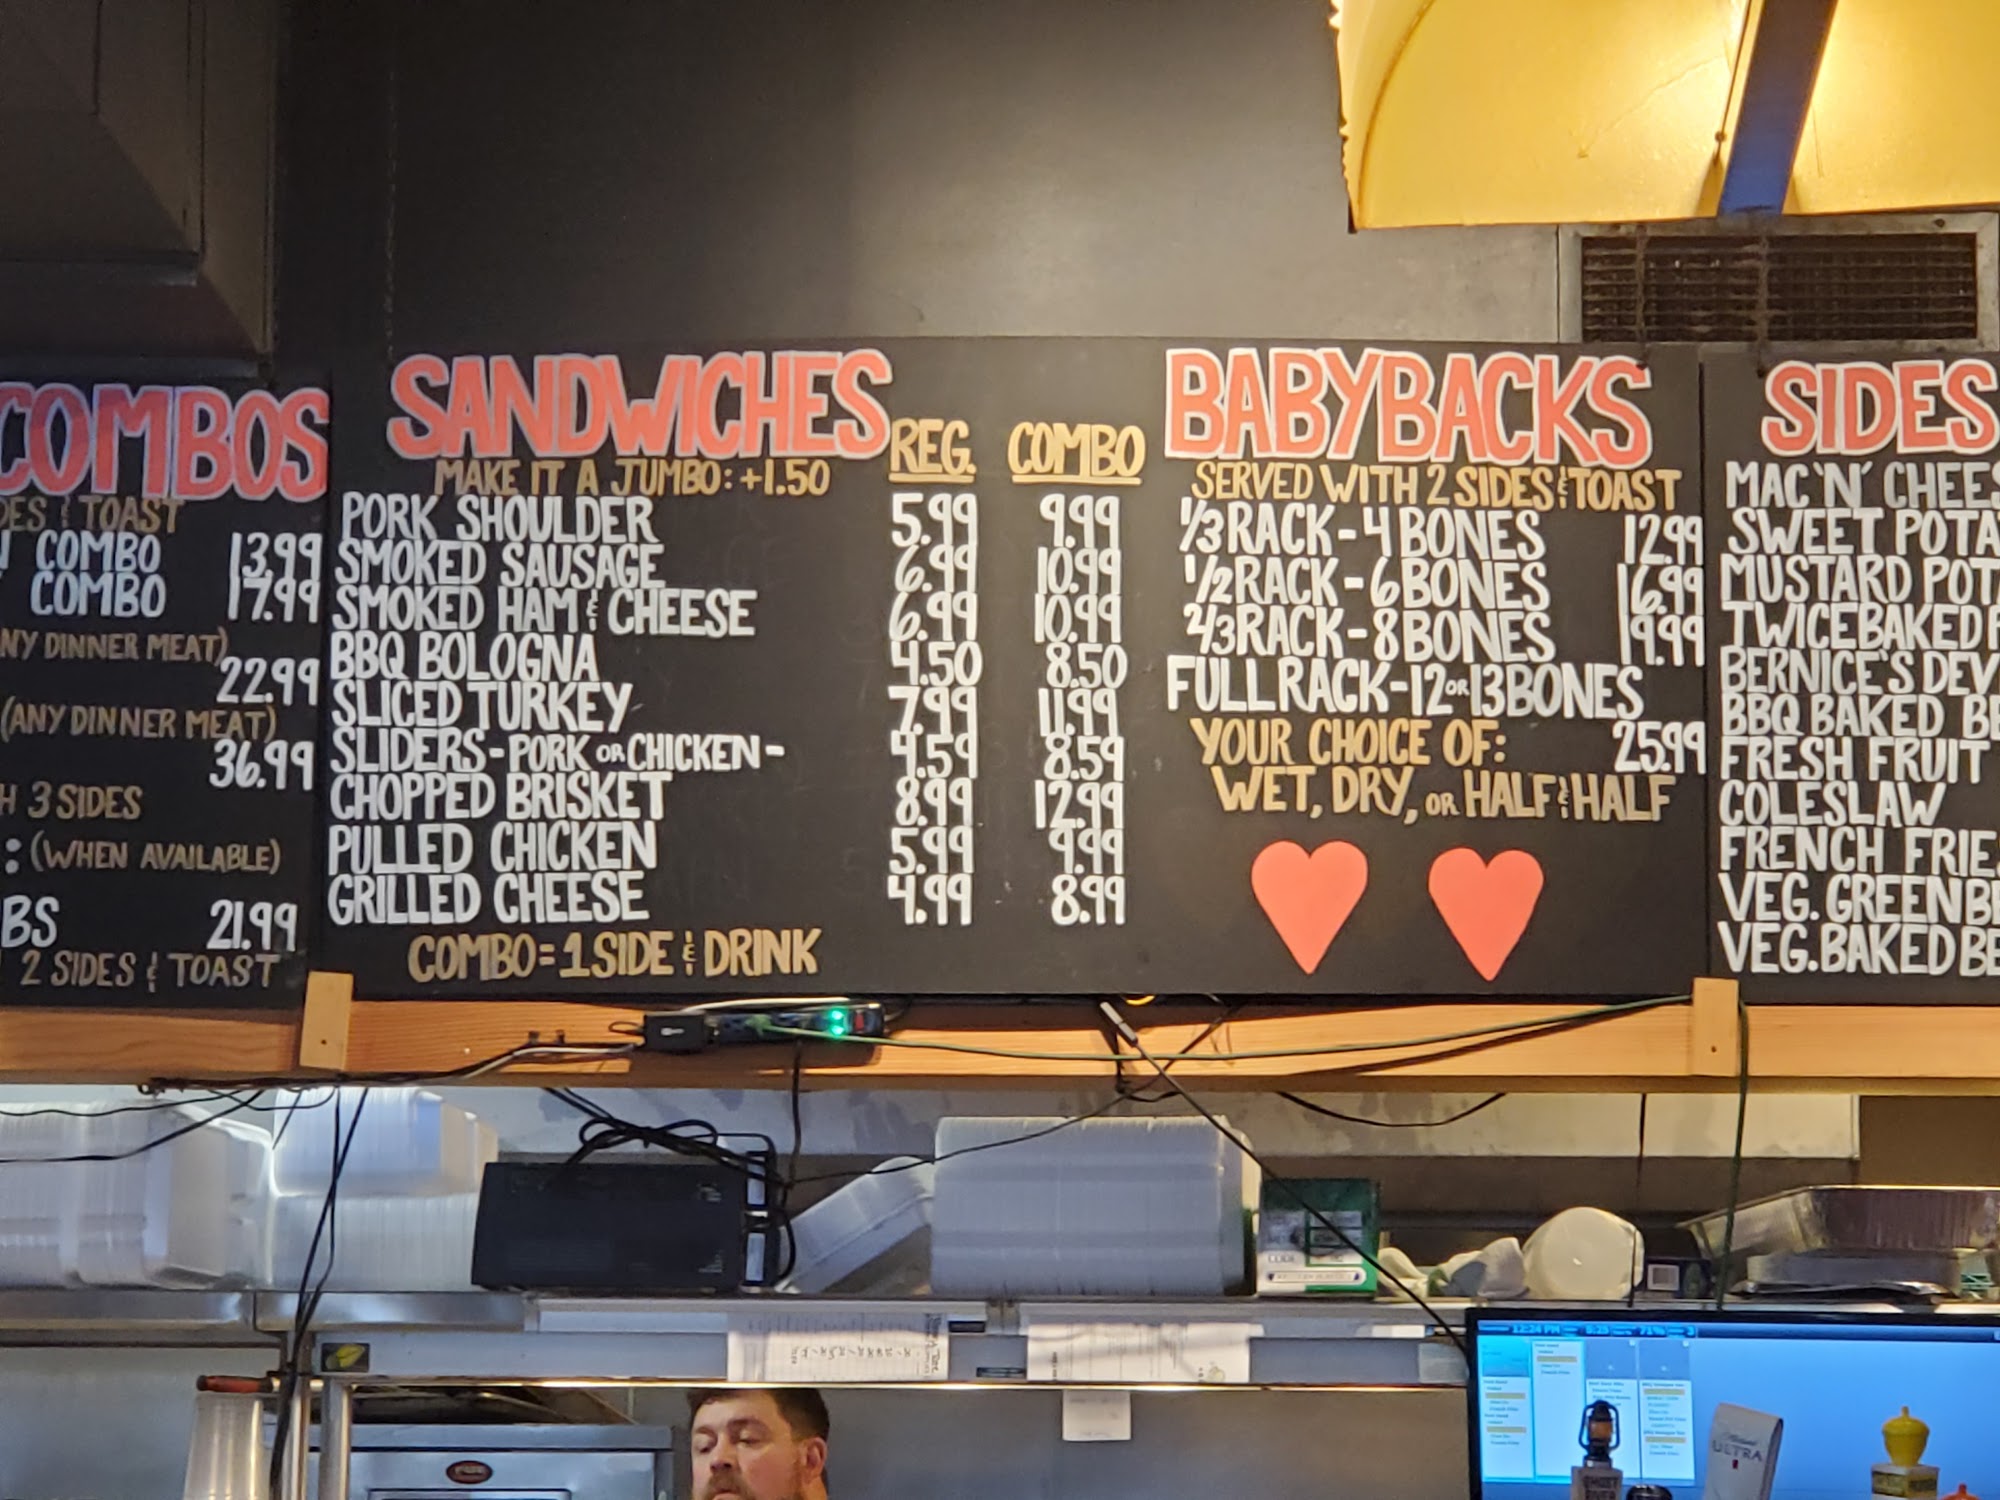 COMBOS
DES & TOAST
COMBO 13.99
COMBO 17.99
NY DINNER MEAT)
22.99
(ANY DINNER MEAT)
36.99
H 3 SIDES
: (WHEN AVAILABLE)
BS 21.99
2 SIDES & TOAST
SANDWICHES
MAKE IT A JUMBO: +1.50 REG. COMBO
PORK SHOULDER 5.99 9.99
SMOKED SAUSAGE 6.99 10.99
SMOKED HAM & CHEESE 6.99 10.99
BBQ BOLOGNA 4.50 8.50
SLICED TURKEY 7.99 11.99
SLIDERS - PORK OR CHICKEN - 4.59 8.59
CHOPPED BRISKET 8.99 12.99
PULLED CHICKEN 5.99 9.99
GRILLED CHEESE 4.99 8.99
COMBO = 1 SIDE & DRINK
BABYBACKS
SERVED WITH 2 SIDES & TOAST
1/3 RACK - 4 BONES 12.99
1/2 RACK - 6 BONES 16.99
2/3 RACK - 8 BONES 19.99
FULL RACK - 12 OR 13 BONES
YOUR CHOICE OF: 25.99
WET, DRY, OR HALF & HALF
SIDES
MAC 'N' CHEES
SWEET POTA
MUSTARD POTA
TWICE BAKED P
BERNICE'S DEV
BBQ BAKED BE
FRESH FRUIT
COLESLAW
FRENCH FRIE
VEG. GREEN BE
VEG. BAKED BE
12:24 PM
ULTRA